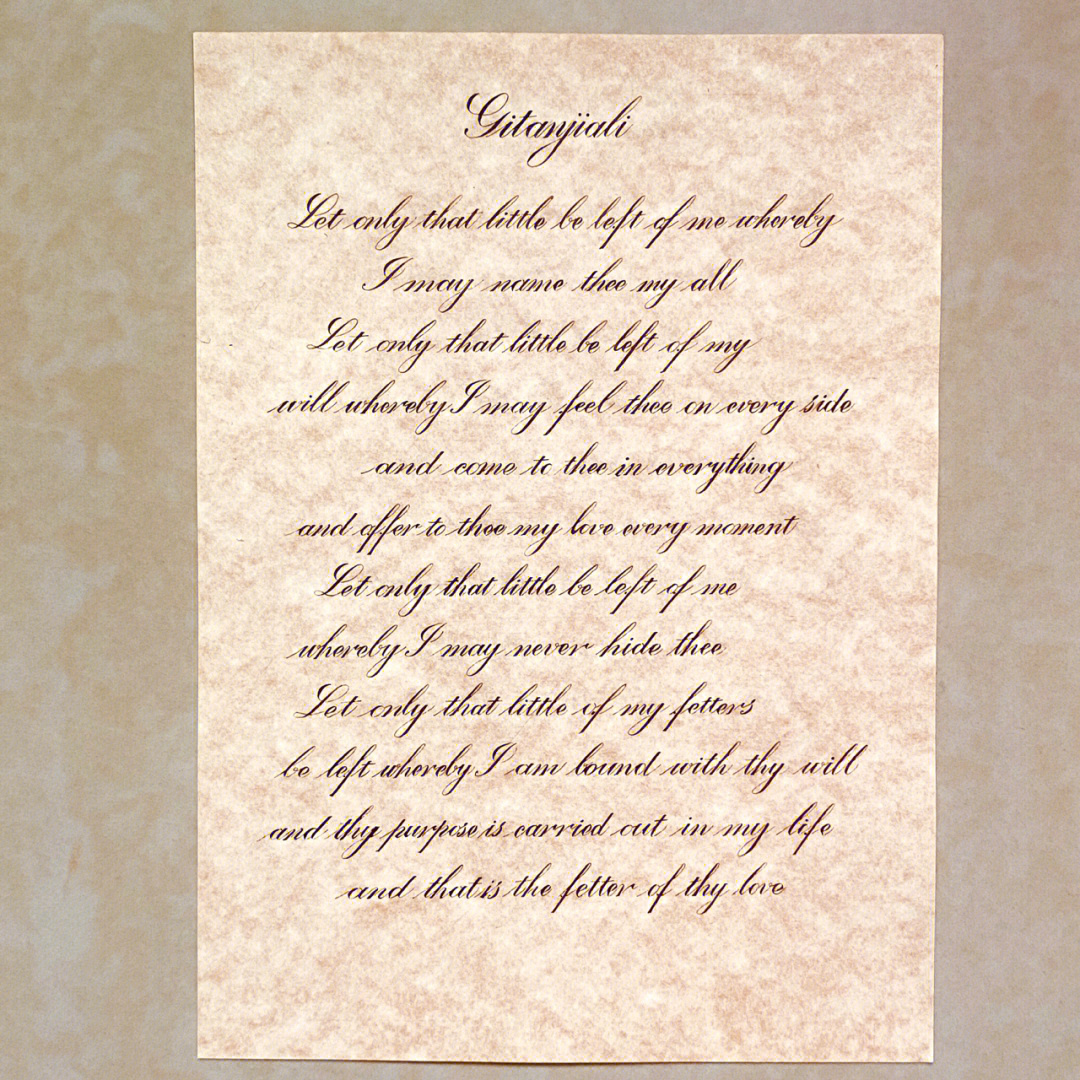 Gitanjiali
Let only that little be left of me whereby
I may name thee my all
Let only that little be left of my
will whereby I may feel thee on every side
and come to thee in everything
and offer to thee my love every moment
Let only that little be left of me
whereby I may never hide thee
Let only that little of my fetters
be left whereby I am bound with thy will
and thy purpose is carried out in my life
and that is the fetter of thy love